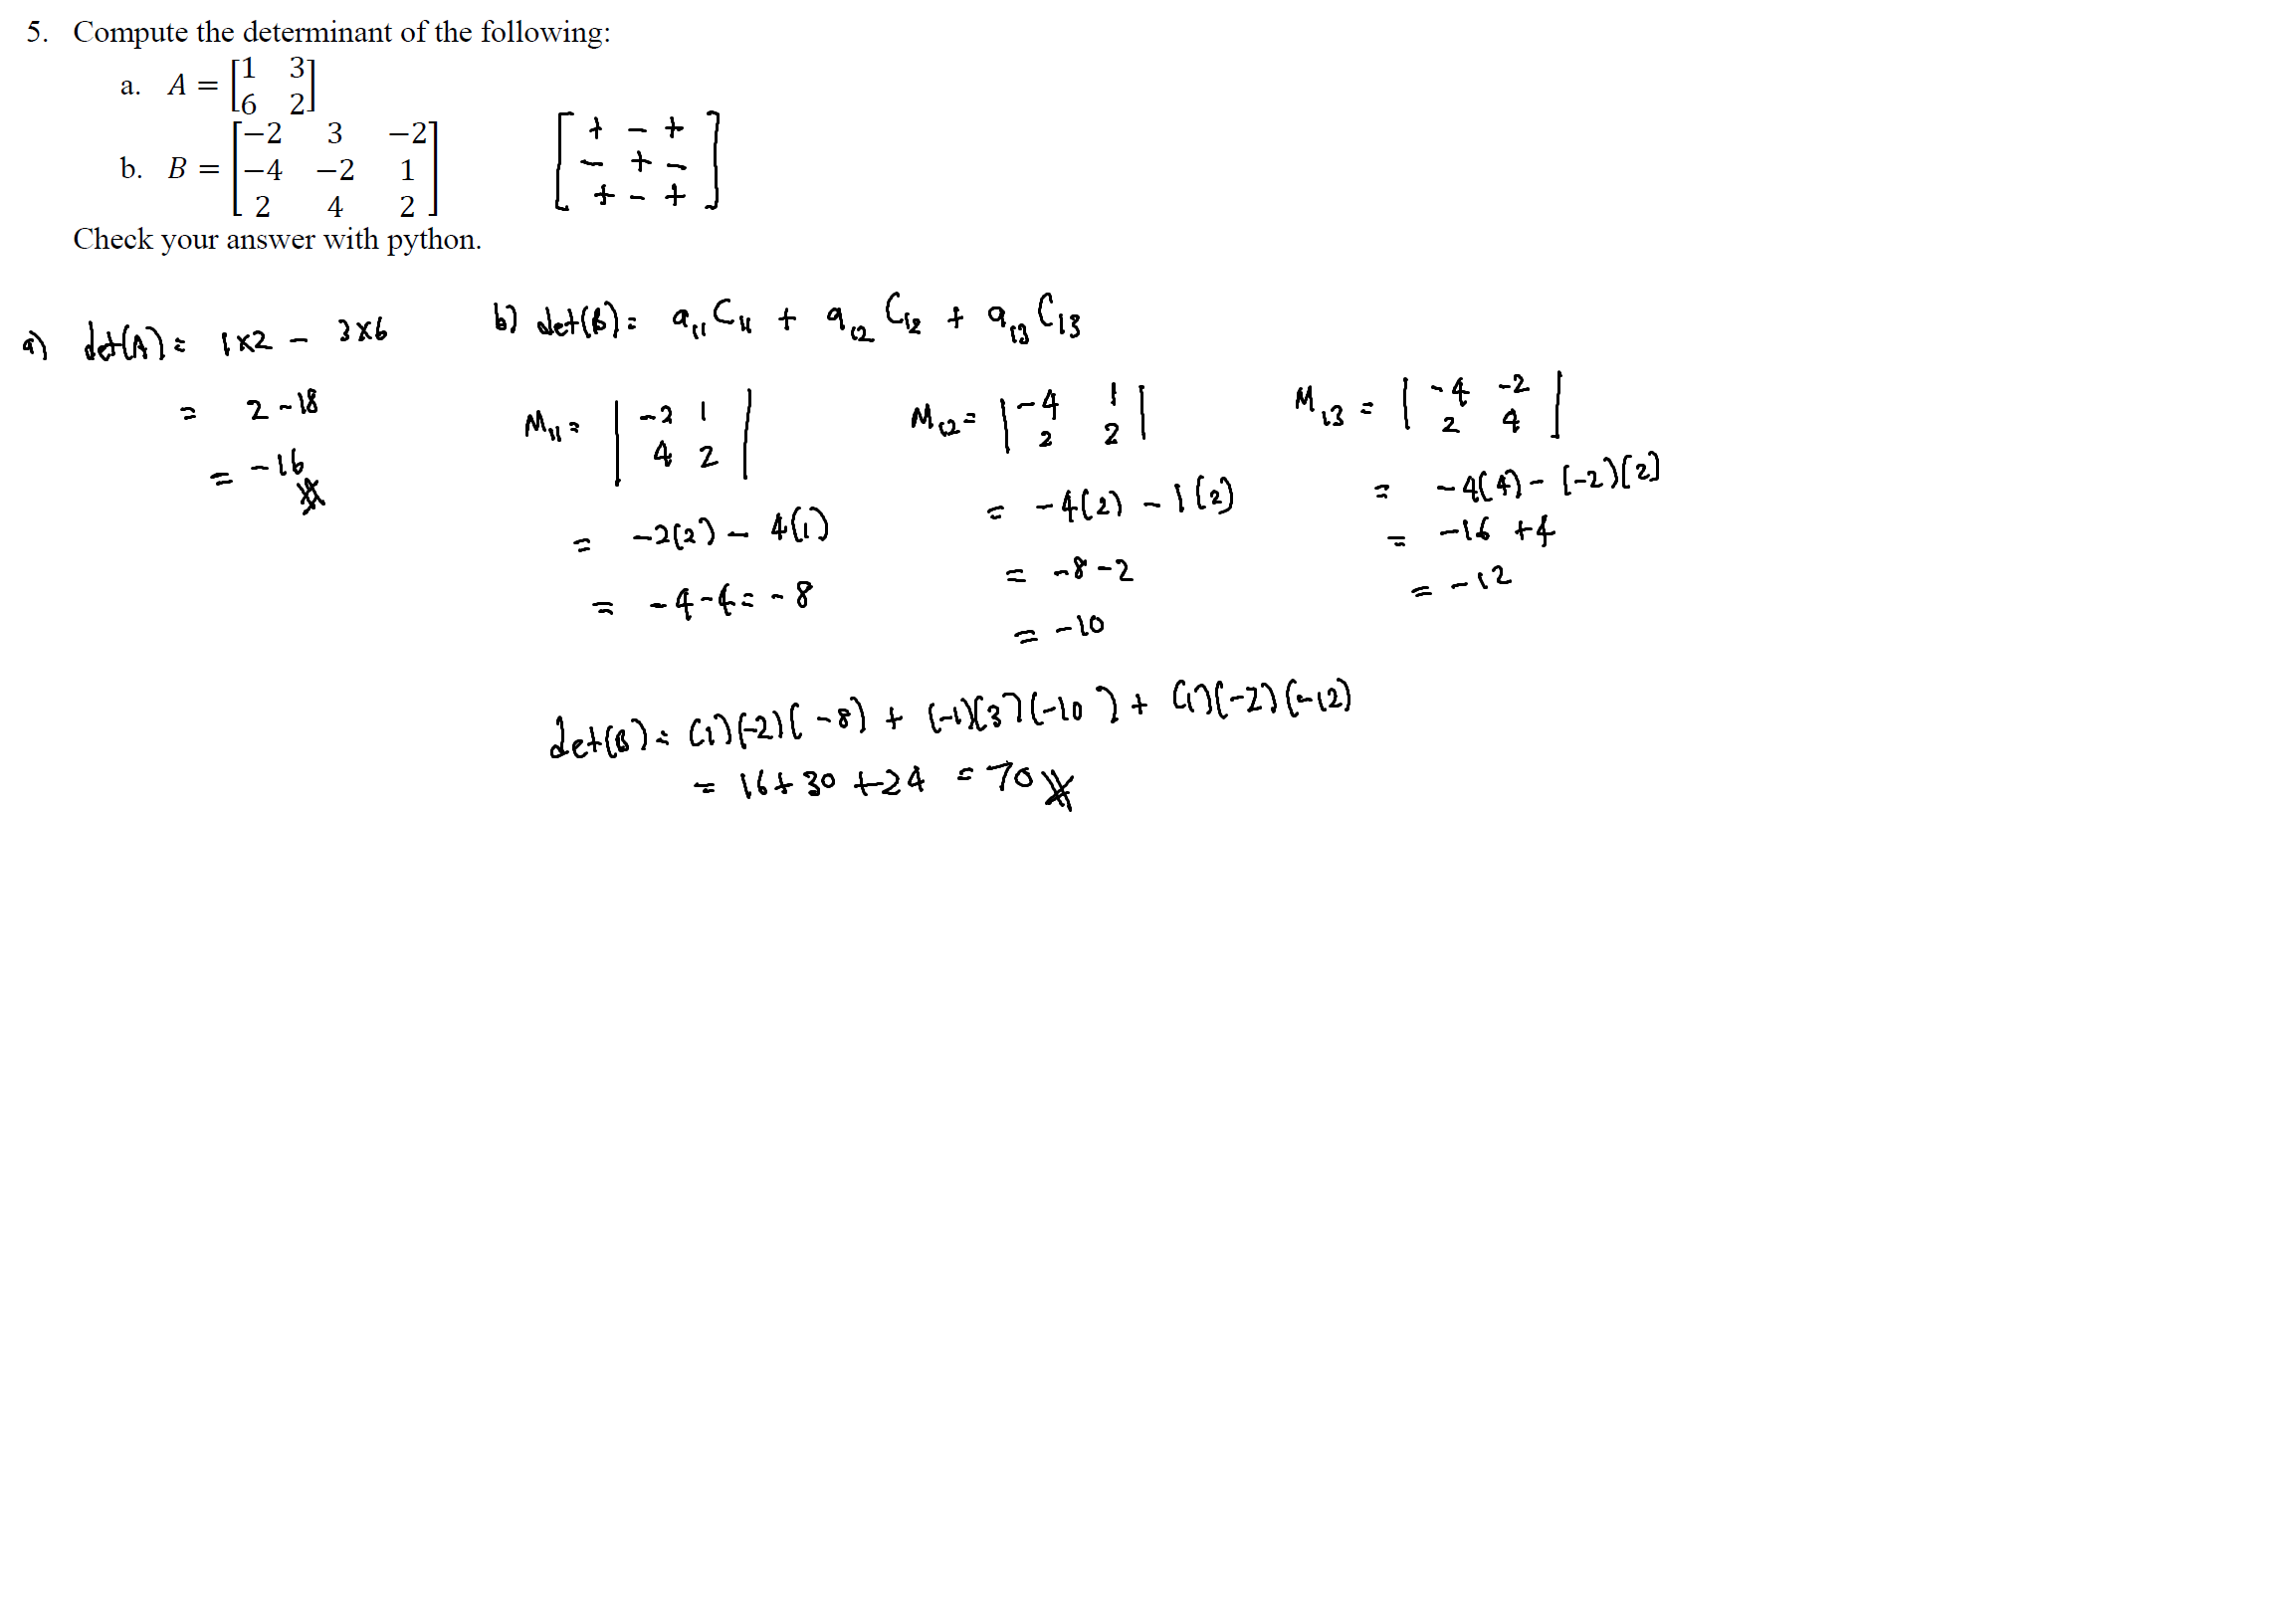 5. Compute the determinant of the following:
a. A = [1 3
6 2]
b. B = [−2 3 −2
−4 −2 1
2 4 2]
[+ − +
− + −
+ − +]
Check your answer with python.
a) det(A) = 1x2 − 3x6
= 2 - 18
= -16
b) det(B) = a11 C11 + a12 C12 + a13 C13
M11 = | -2 1
4 2 |
= -2(2) - 4(1)
= -4-4 = -8
M12 = | -4 1
2 2 |
= -4(2) - 1(2)
= -8-2
= -10
M13 = | -4 -2
2 4 |
= -4(4) - (-2)(2)
= -16 +4
= -12
det(B) = (1)(-2)(-8) + (-1)(3)(-10) + (1)(-2)(-12)
= 16 + 30 + 24 = 70